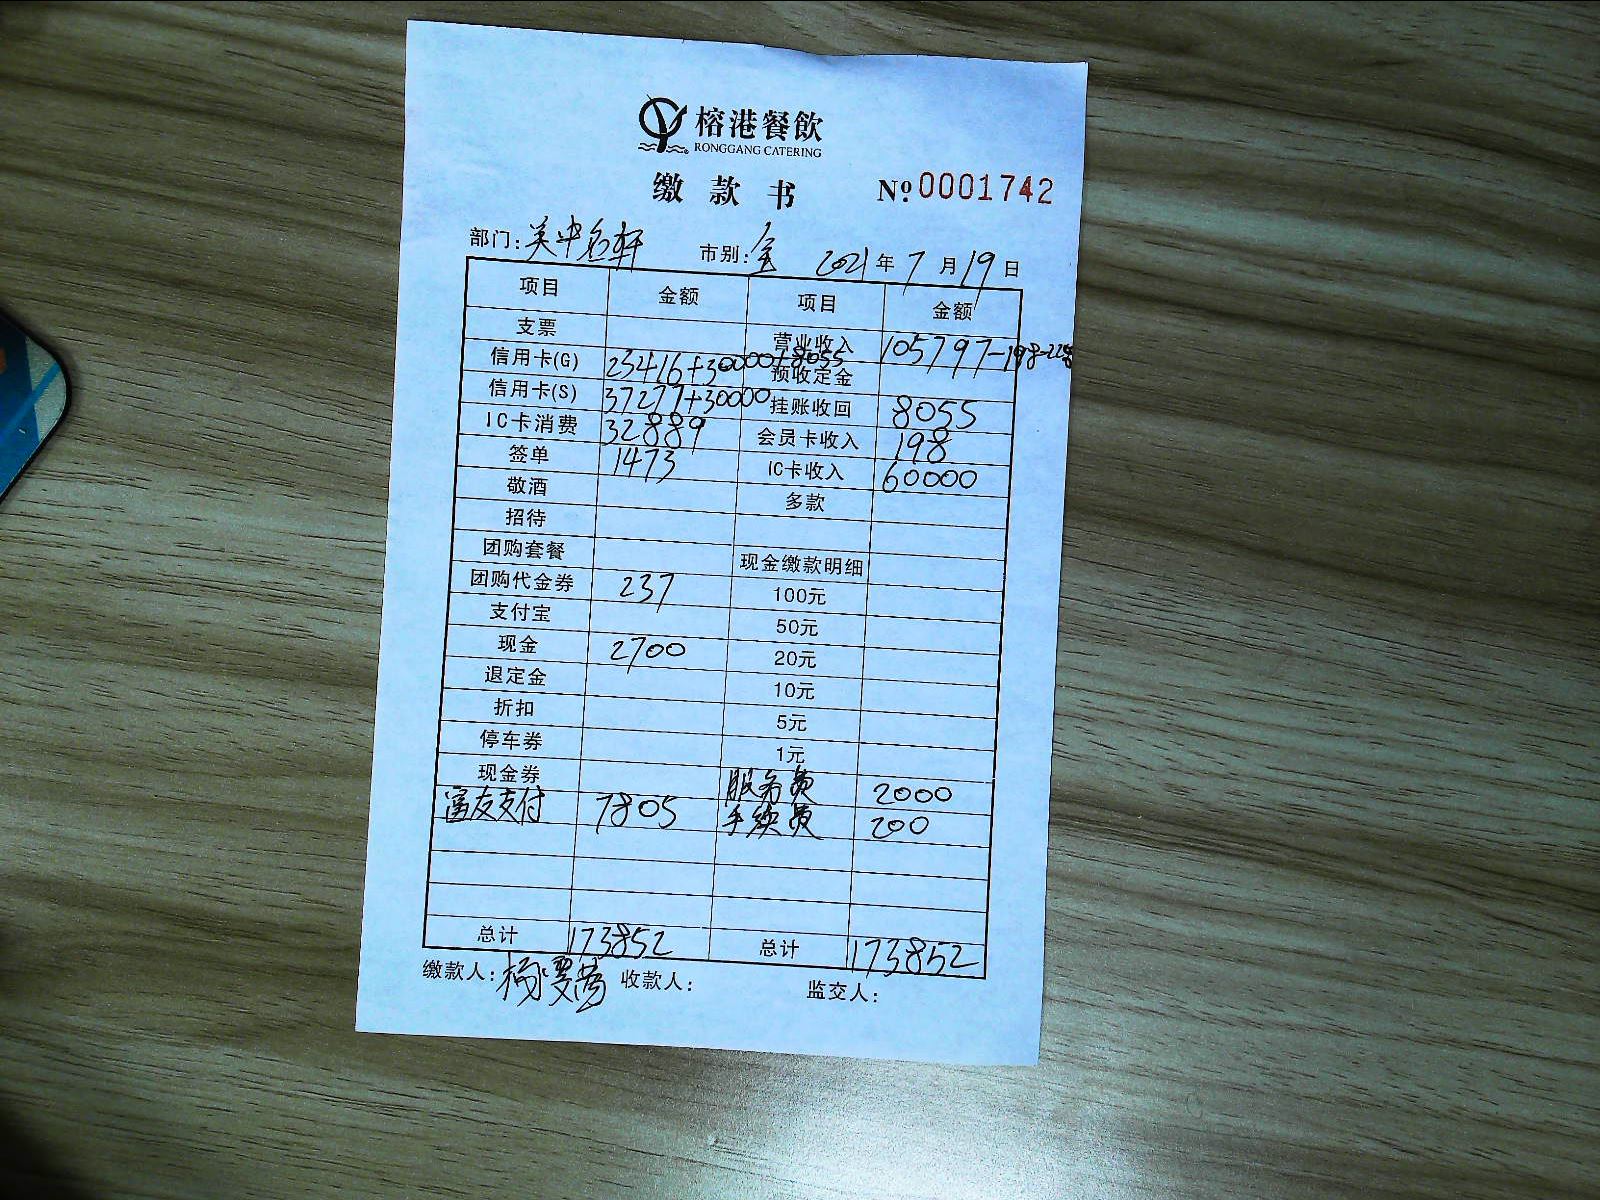 榕港餐飲
RONGGANG CATERING
缴款书 Nº 0001742
部门: 吴中名轩 市别: 全 2021 年 7 月 19 日
项目 金额 项目 金额
支票 营业收入 105797-198-2200
信用卡(G) 23416+30000+8055 预收定金
信用卡(S) 37277+30000 挂账收回 8055
IC卡消费 32889 会员卡收入 198
签单 1473 IC卡收入 60000
敬酒 多款
招待
团购套餐 现金缴款明细
团购代金券 237 100元
支付宝 50元
现金 2700 20元
退定金 10元
折扣 5元
停车券 1元
现金券 服务费 2000
富友支付 7805 手续费 200
总计 173852 总计 173852
缴款人: 收款人: 监交人: